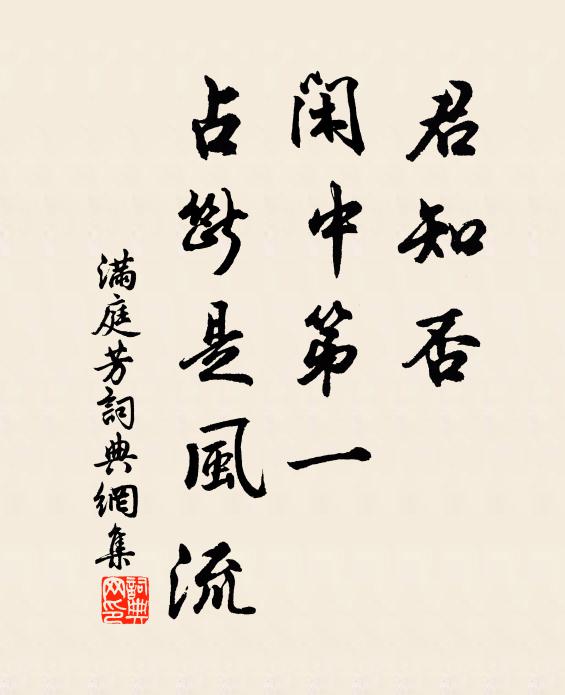 君知否
閑中第一
占斷是風流
滿庭芳詞典網集
詞典網印